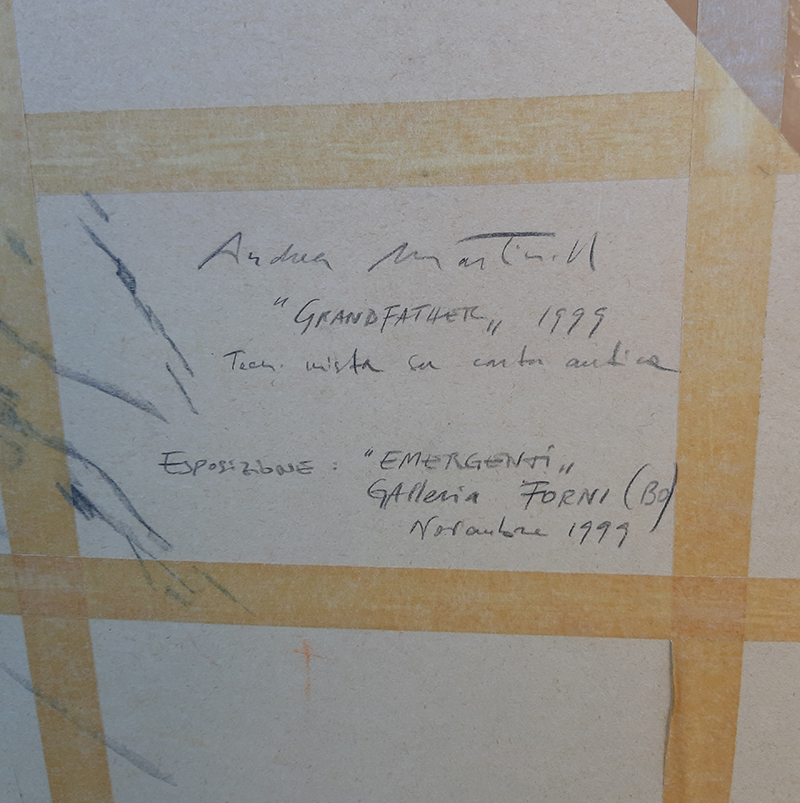 Andrea Martinelli
"GRANDFATHER" 1999
Tecn. mista su carta antica
ESPOSIZIONE : "EMERGENTI"
GAlleria FORNI (BO)
Novembre 1999